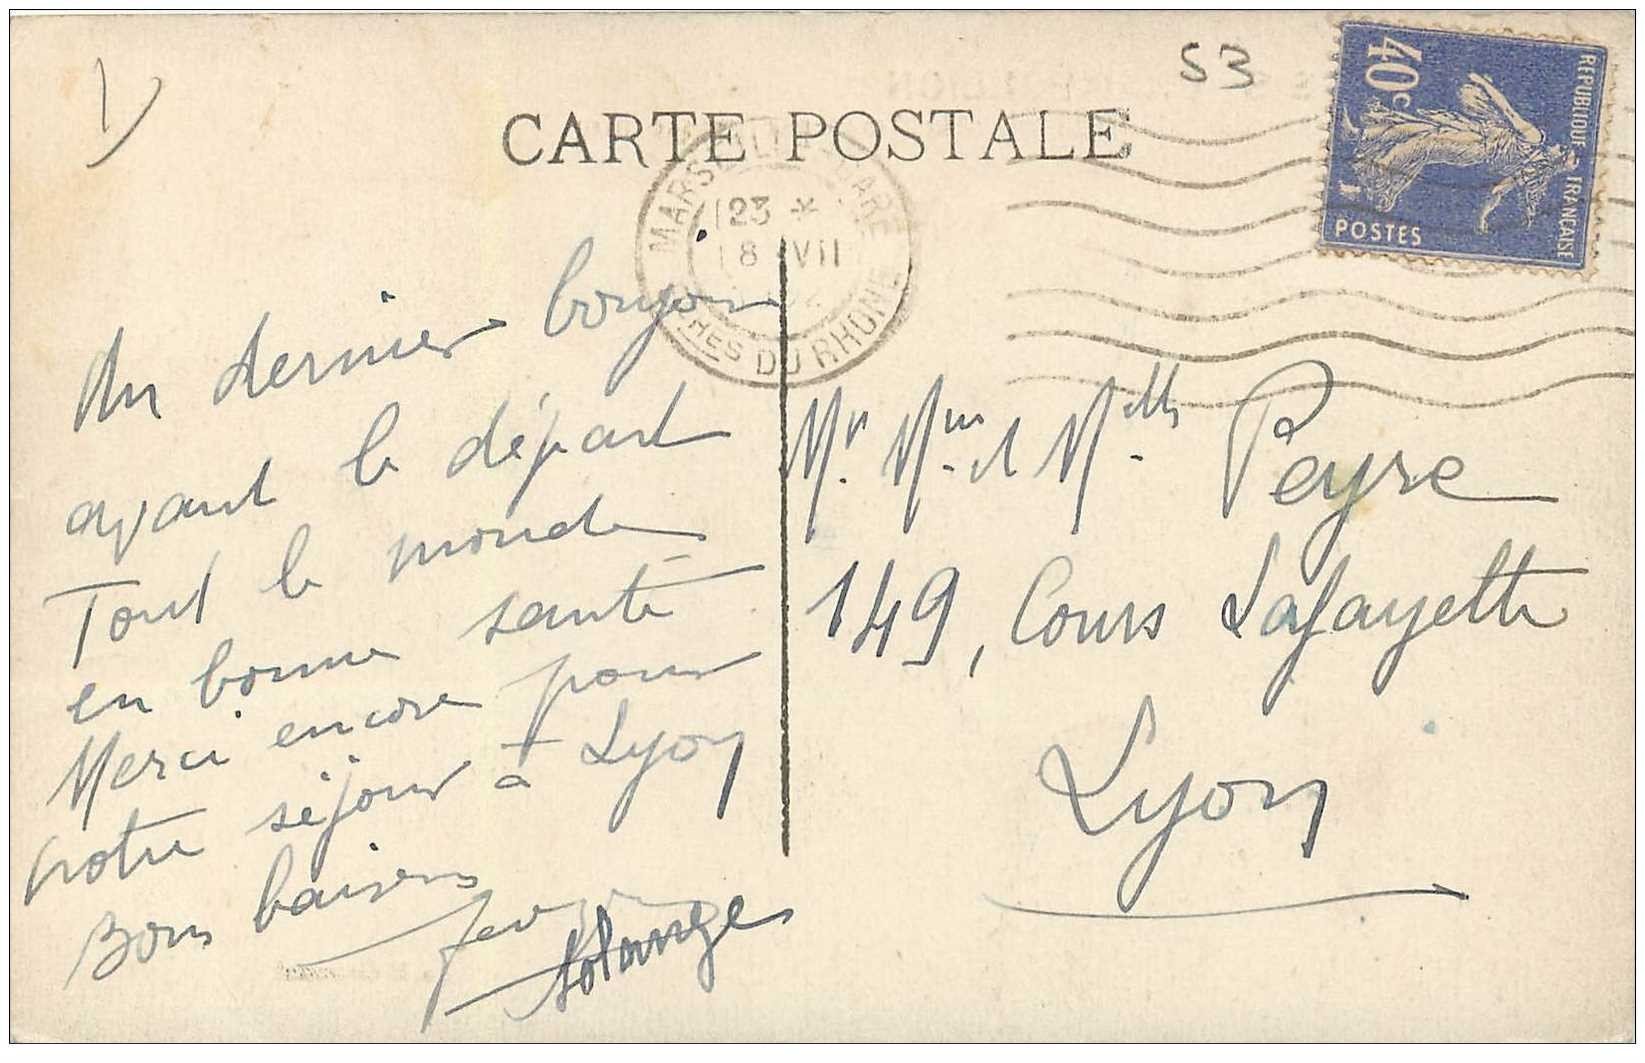 53
CARTE POSTALE
40c
REPUBLIQUE FRANÇAISE
POSTES
MARSEILLE GARE
23 *
8 VII
BCHES DU RHONE
Un dernier bonjour
avant le départ
Tout le monde
en bonne santé
Merci encore pour
notre séjour à Lyon
Bons baisers
Solange
Mr. Mme. et Mlle. Peyre
149, Cours Lafayette
Lyon